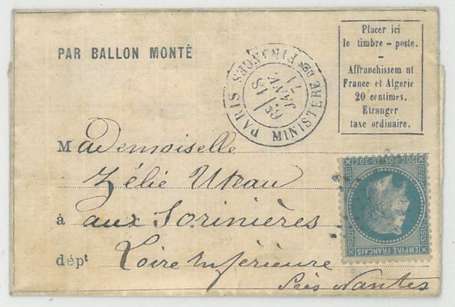 PAR BALLON MONTÉ
PARIS MINISTÈRE DES FINANCES
18
JANV.
71
Placer ici
le timbre-poste.
Affranchissem nt
France et Algérie
20 centimes.
Etranger
taxe ordinaire.
Mademoiselle
Zélie
à aux Sorinières
dépt Loire Inférieure
Près Nantes
EMPIRE FRANÇAIS